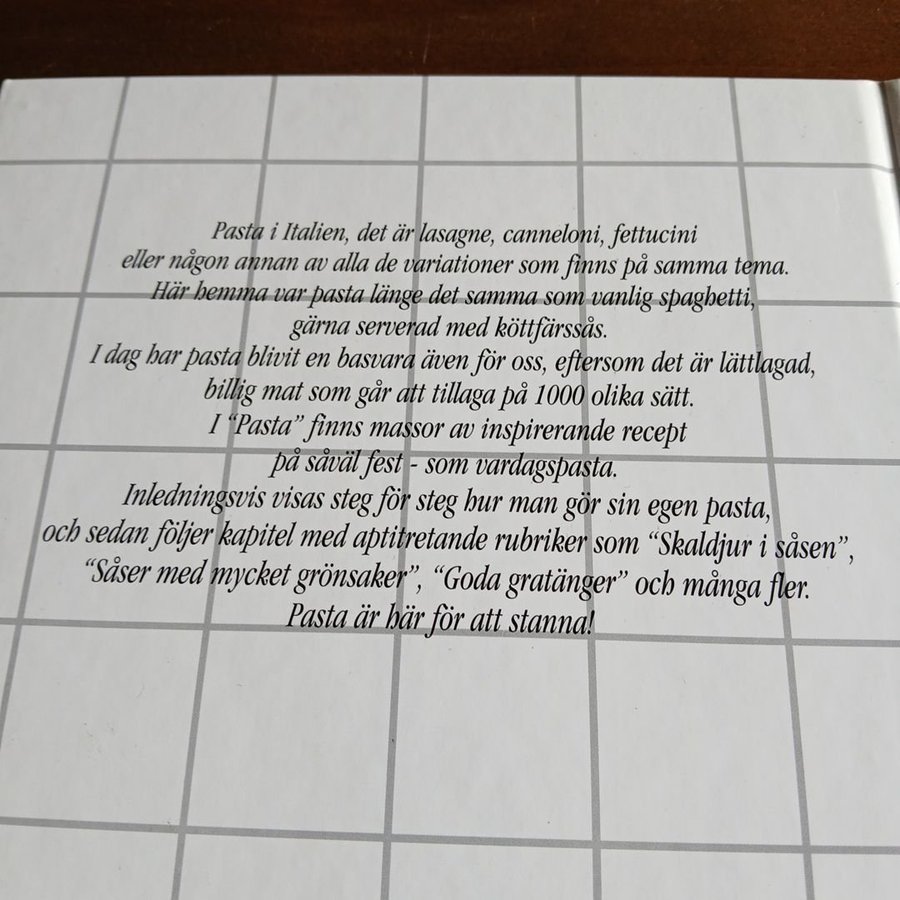 Pasta i Italien, det är lasagne, canneloni, fettucini
eller någon annan av alla de variationer som finns på samma tema.
Här hemma var pasta länge det samma som vanlig spaghetti,
gärna serverad med köttfärssås.
I dag har pasta blivit en basvara även för oss, eftersom det är lättlagad,
billig mat som går att tillaga på 1000 olika sätt.
I “Pasta” finns massor av inspirerande recept
på såväl fest - som vardagspasta.
Inledningsvis visas steg för steg hur man gör sin egen pasta,
och sedan följer kapitel med aptitretande rubriker som “Skaldjur i såsen”,
“Såser med mycket grönsaker”, “Goda gratänger” och många fler.
Pasta är här för att stanna!